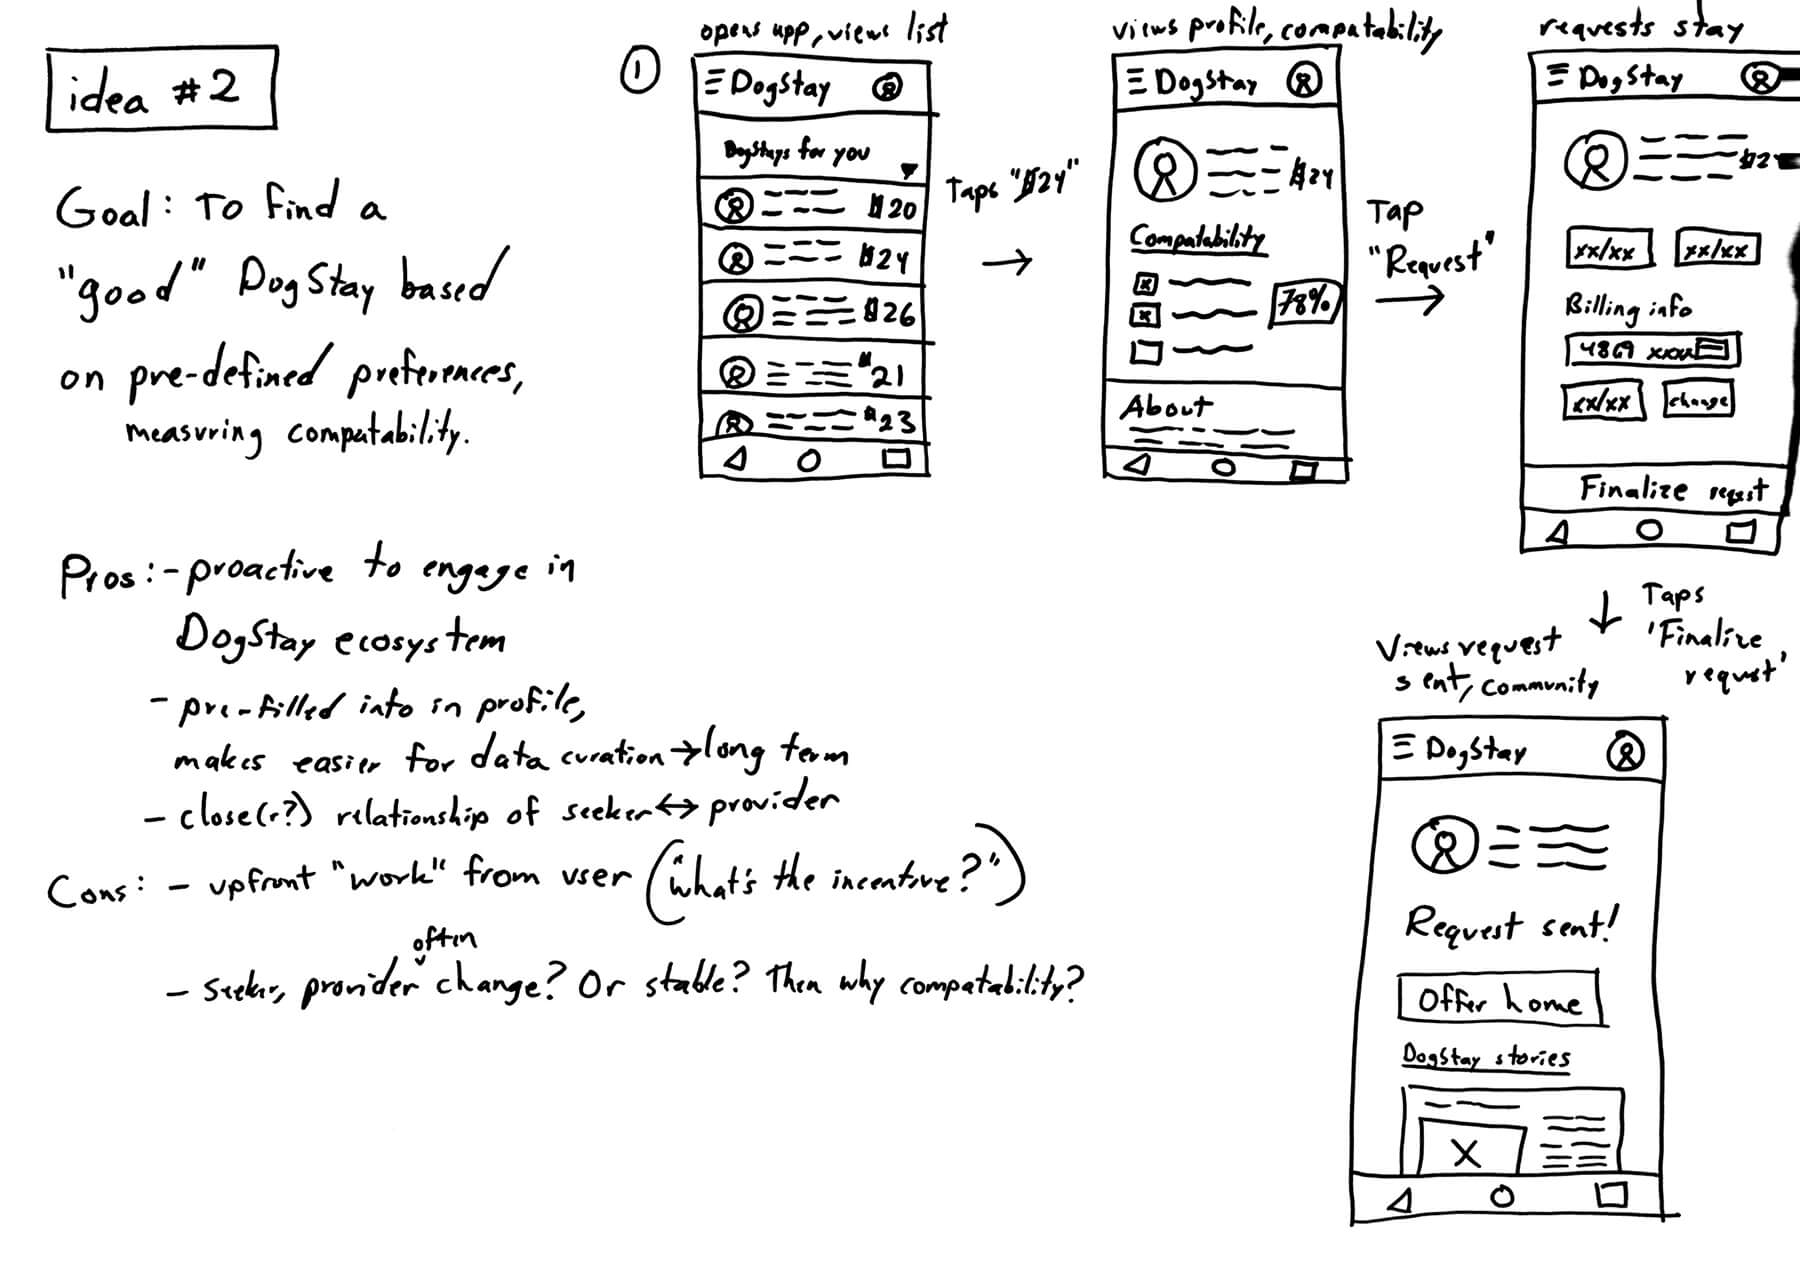 idea #2
Goal: To find a
"good" DogStay based
on pre-defined preferences,
measuring compatability.
Pros: - proactive to engage in
DogStay ecosystem
- pre-filled info in profile,
makes easier for data curation → long term
- close(r?) relationship of seeker ↔ provider
Cons: - upfront "work" from user ("what's the incentive?")
often
- seeker, provider change? Or stable? Then why compatability?
1
opens app, views list
DogStay
DogStays for you
$20
$24
$26
$21
$23
Taps "$24"
→
views profile, compatability
DogStay
$24
Compatability
78%
About
Tap
"Request"
→
requests stay
DogStay
xx/xx xx/xx
Billing info
4869 xxxx
xx/xx change
Finalize reqest
↓
Taps
'Finalize
requst'
Views request
sent, community
DogStay
Request sent!
Offer home
DogStay stories